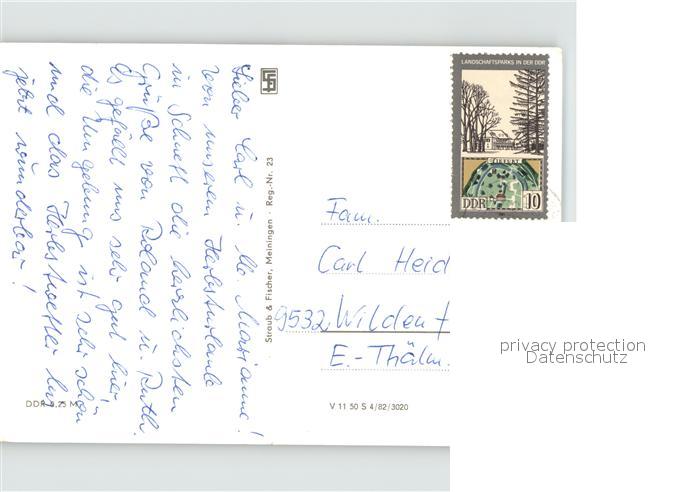 Lieber Carl u. lb. Marianne!
Von unserem Herbsturlaub
in Schnett die herzlichsten
Grüße von Roland u. Ruth.
Es gefällt uns sehr gut hier,
die Umgebung ist sehr schön
und das Herbstwetter bis
jetzt wunderbar!
Straub & Fischer, Meiningen · Reg.-Nr. 23
DDR 0,25 M
V 11 50 S 4/82/3020
LANDSCHAFTSPARKS IN DER DDR
TIEFURT
DDR 10
Fam.
Carl Heid
9532 Wilden
E.-Thälm.
privacy protection
Datenschutz